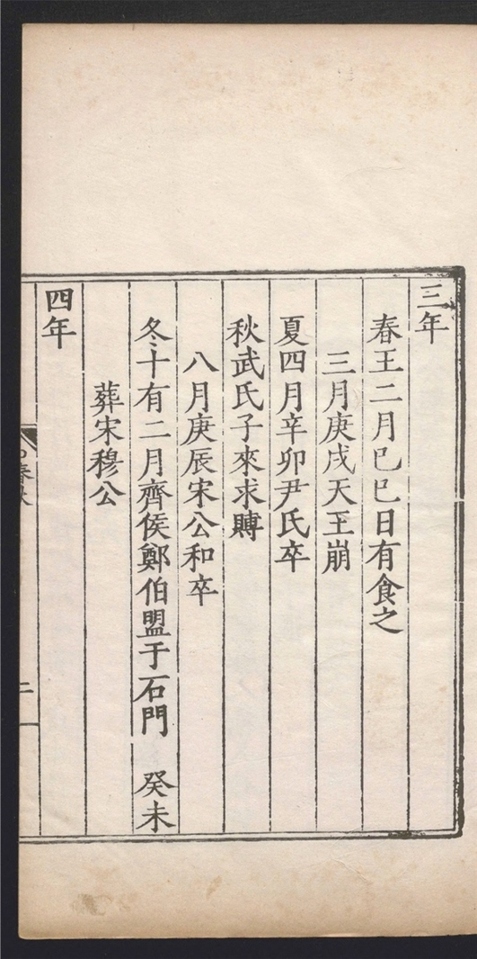 三年
春王二月己巳日有食之
三月庚戌天王崩
夏四月辛卯尹氏卒
秋武氏子來求賻
八月庚辰宋公和卒
冬十有二月齊侯鄭伯盟于石門　癸未
葬宋穆公
四年
春秋
二